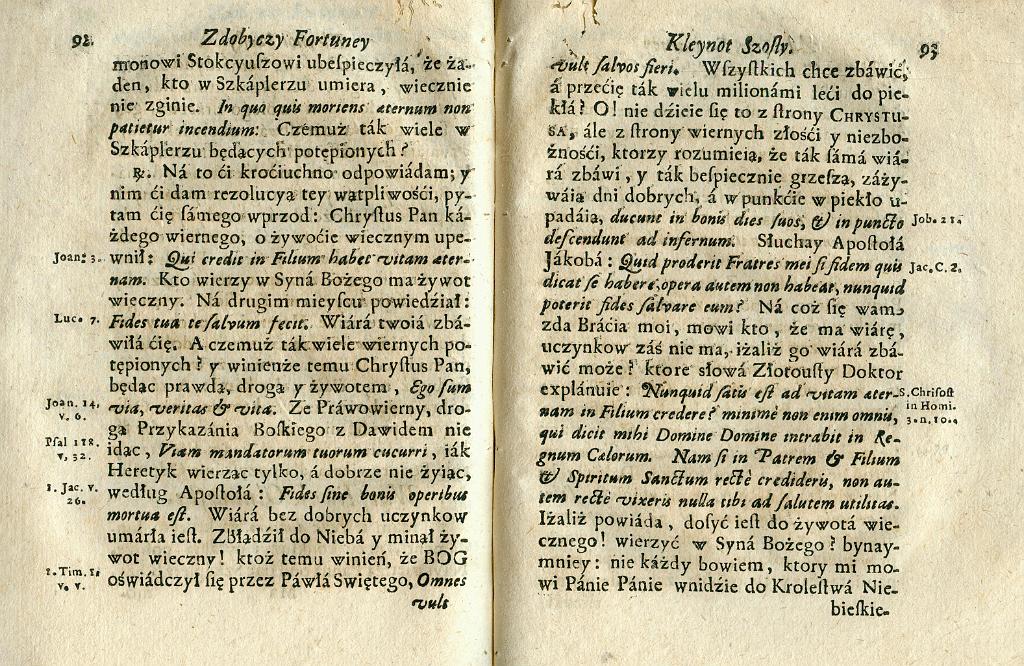 92.
Zdobyczy Fortuney
monowi Stokcyuſzowi ubeſpieczyłá, że ża-
den, kto w Szkáplerzu umiera, wiecznie
nie zginie. In quo quis moriens æternum non
patietur incendium: Czemuż ták wiele w
Szkáplerzu będących potępionych?
℟. Ná to ći kroćiuchno odpowiádam; y
nim ći dam rezolucyą tey wątpliwośći, py-
tam ćię ſámego wprzod: Chryſtus Pan ká-
żdego wiernego, o żywoćie wiecznym upe-
Joan: 3.
wnił: Qui credit in Filium habet vitam æter-
nam. Kto wierzy w Syná Bożego ma żywot
wieczny. Ná drugim mieyſcu powiedział:
Luc. 7.
Fides tua te ſalvum fecit. Wiárá twoiá zbá-
wiłá ćię. A czemuż ták wiele wiernych po-
tępionych? y winienże temu Chryſtus Pan,
będąc prawdą, drogą y żywotem, Ego ſum
Joan. 14.
v. 6.
via, veritas & vita. Ze Práwowierny, dro-
gą Przykazánia Boſkiego z Dawidem nie
Pſal 118.
v, 32.
idąc, Viam mandatorum tuorum cucurri, iák
Heretyk wierząc tylko, á dobrze nie żyiąc,
1. Jac. v.
26.
według Apoſtołá: Fides ſine bonis operibus
mortua eſt. Wiárá bez dobrych uczynkow
umárła ieſt. Zbłądził do Niebá y minął ży-
wot wieczny! ktoż temu winień, że BOG
1. Tim. 1.
v. v.
oświádczył ſię przez Páwłá Swiętego, Omnes
vult
Kleynot Szoſty.
93
vult ſalvos fieri. Wſzyſtkich chce zbáwić,
á przećię ták wielu milionámi leći do pie-
kłá? O! nie dzieie ſię to z ſtrony CHRYSTU-
SA, ále z ſtrony wiernych złośći y niezbo-
żnośći, ktorzy rozumieią, że ták ſámá wiá-
rá zbáwi, y ták beſpiecznie grzeſzą, záży-
wáią dni dobrych, á w punkćie w piekło u-
padáią, ducunt in bonis dies ſuos, & in puncto
Job. 21.
deſcendunt ad infernum. Słuchay Apoſtołá
Jákobá: Quid proderit Fratres mei ſi fidem quis
Jac. C. 2.
dicat ſe habere, opera autem non habeat, nunquid
poterit fides ſalvare eum? Ná coż ſię wam
zda Brácia moi, mowi kto, że ma wiárę,
uczynkow záś nie ma, iżaliż go wiárá zbá-
wić może? ktore słowá Złotouſty Doktor
explánuie: Nunquid ſatis eſt ad vitam æter-
S. Chriſoſt
nam in Filium credere? minimè non enim omnis,
in Homi.
3. n. 10.
qui dicit mihi Domine Domine intrabit in Re-
gnum Cælorum. Nam ſi in Patrem & Filium
& Spiritum Sanctum rectè credideris, non au-
tem rectè vixeris nulla tibi ad ſalutem utilitas.
Iżaliż powiáda, dosyć ieſt do żywotá wie-
cznego! wierzyć w Syná Bożego? bynay-
mniey: nie káżdy bowiem, ktory mi mo-
wi Pánie Pánie wnidzie do Kroleſtwá Nie-
bieſkie-